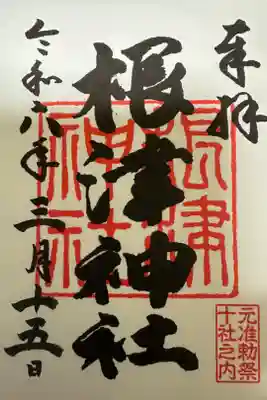 奉拝
根津神社
根津神社
令和八年三月十五日
元准勅祭
十社之内